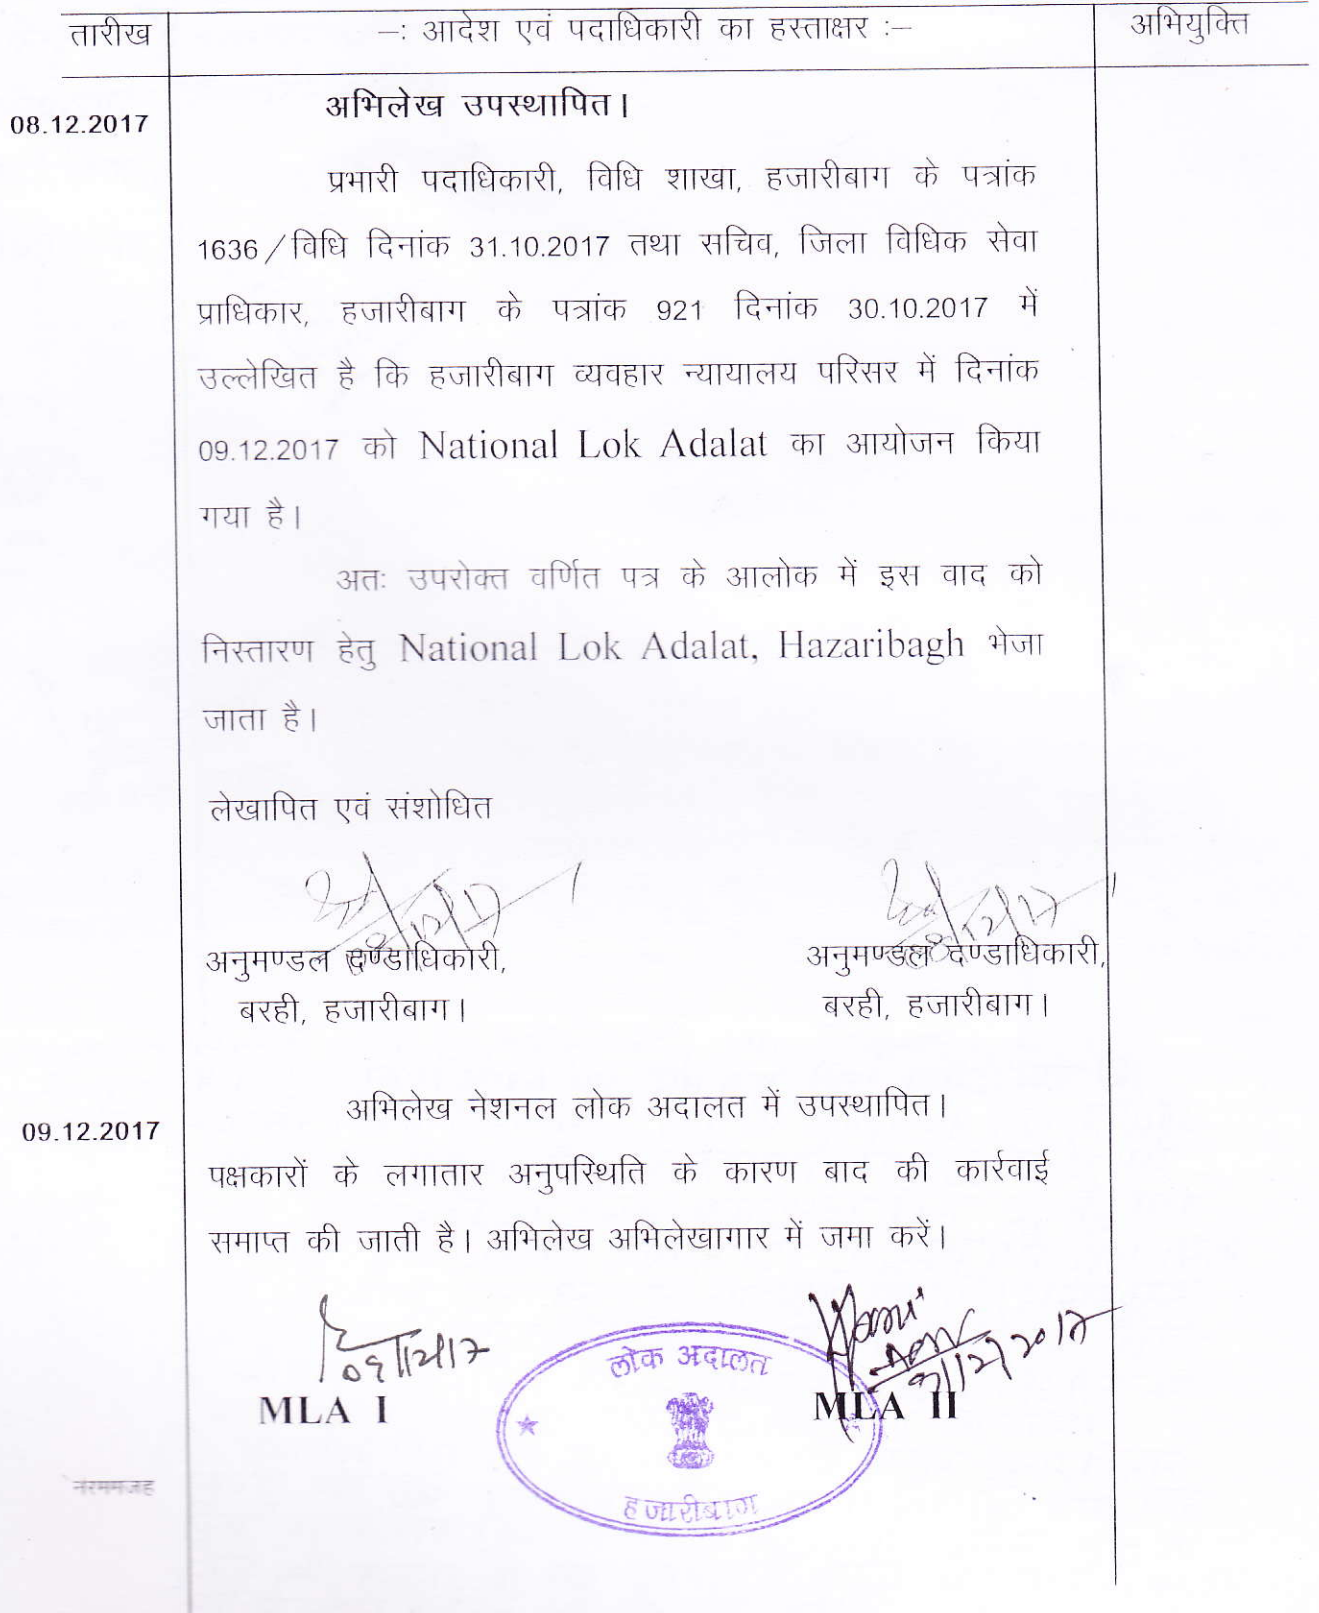 तारीख -: आदेश एवं पदाधिकारी का हस्ताक्षर :- अभियुक्ति
08.12.2017 अभिलेख उपस्थापित।
प्रभारी पदाधिकारी, विधि शाखा, हजारीबाग के पत्रांक
1636/विधि दिनांक 31.10.2017 तथा सचिव, जिला विधिक सेवा
प्राधिकार, हजारीबाग के पत्रांक 921 दिनांक 30.10.2017 में
उल्लेखित है कि हजारीबाग व्यवहार न्यायालय परिसर में दिनांक
09.12.2017 को National Lok Adalat का आयोजन किया
गया है।
अतः उपरोक्त वर्णित पत्र के आलोक में इस वाद को
निस्तारण हेतु National Lok Adalat, Hazaribagh भेजा
जाता है।
लेखापित एवं संशोधित
अनुमण्डल दण्डाधिकारी, अनुमण्डल दण्डाधिकारी,
बरही, हजारीबाग। बरही, हजारीबाग।
09.12.2017 अभिलेख नेशनल लोक अदालत में उपस्थापित।
पक्षकारों के लगातार अनुपस्थिति के कारण बाद की कार्रवाई
समाप्त की जाती है। अभिलेख अभिलेखागार में जमा करें।
09/12/17 9/12/2017
लोक अदालत
MLA I MLA II
हजारीबाग